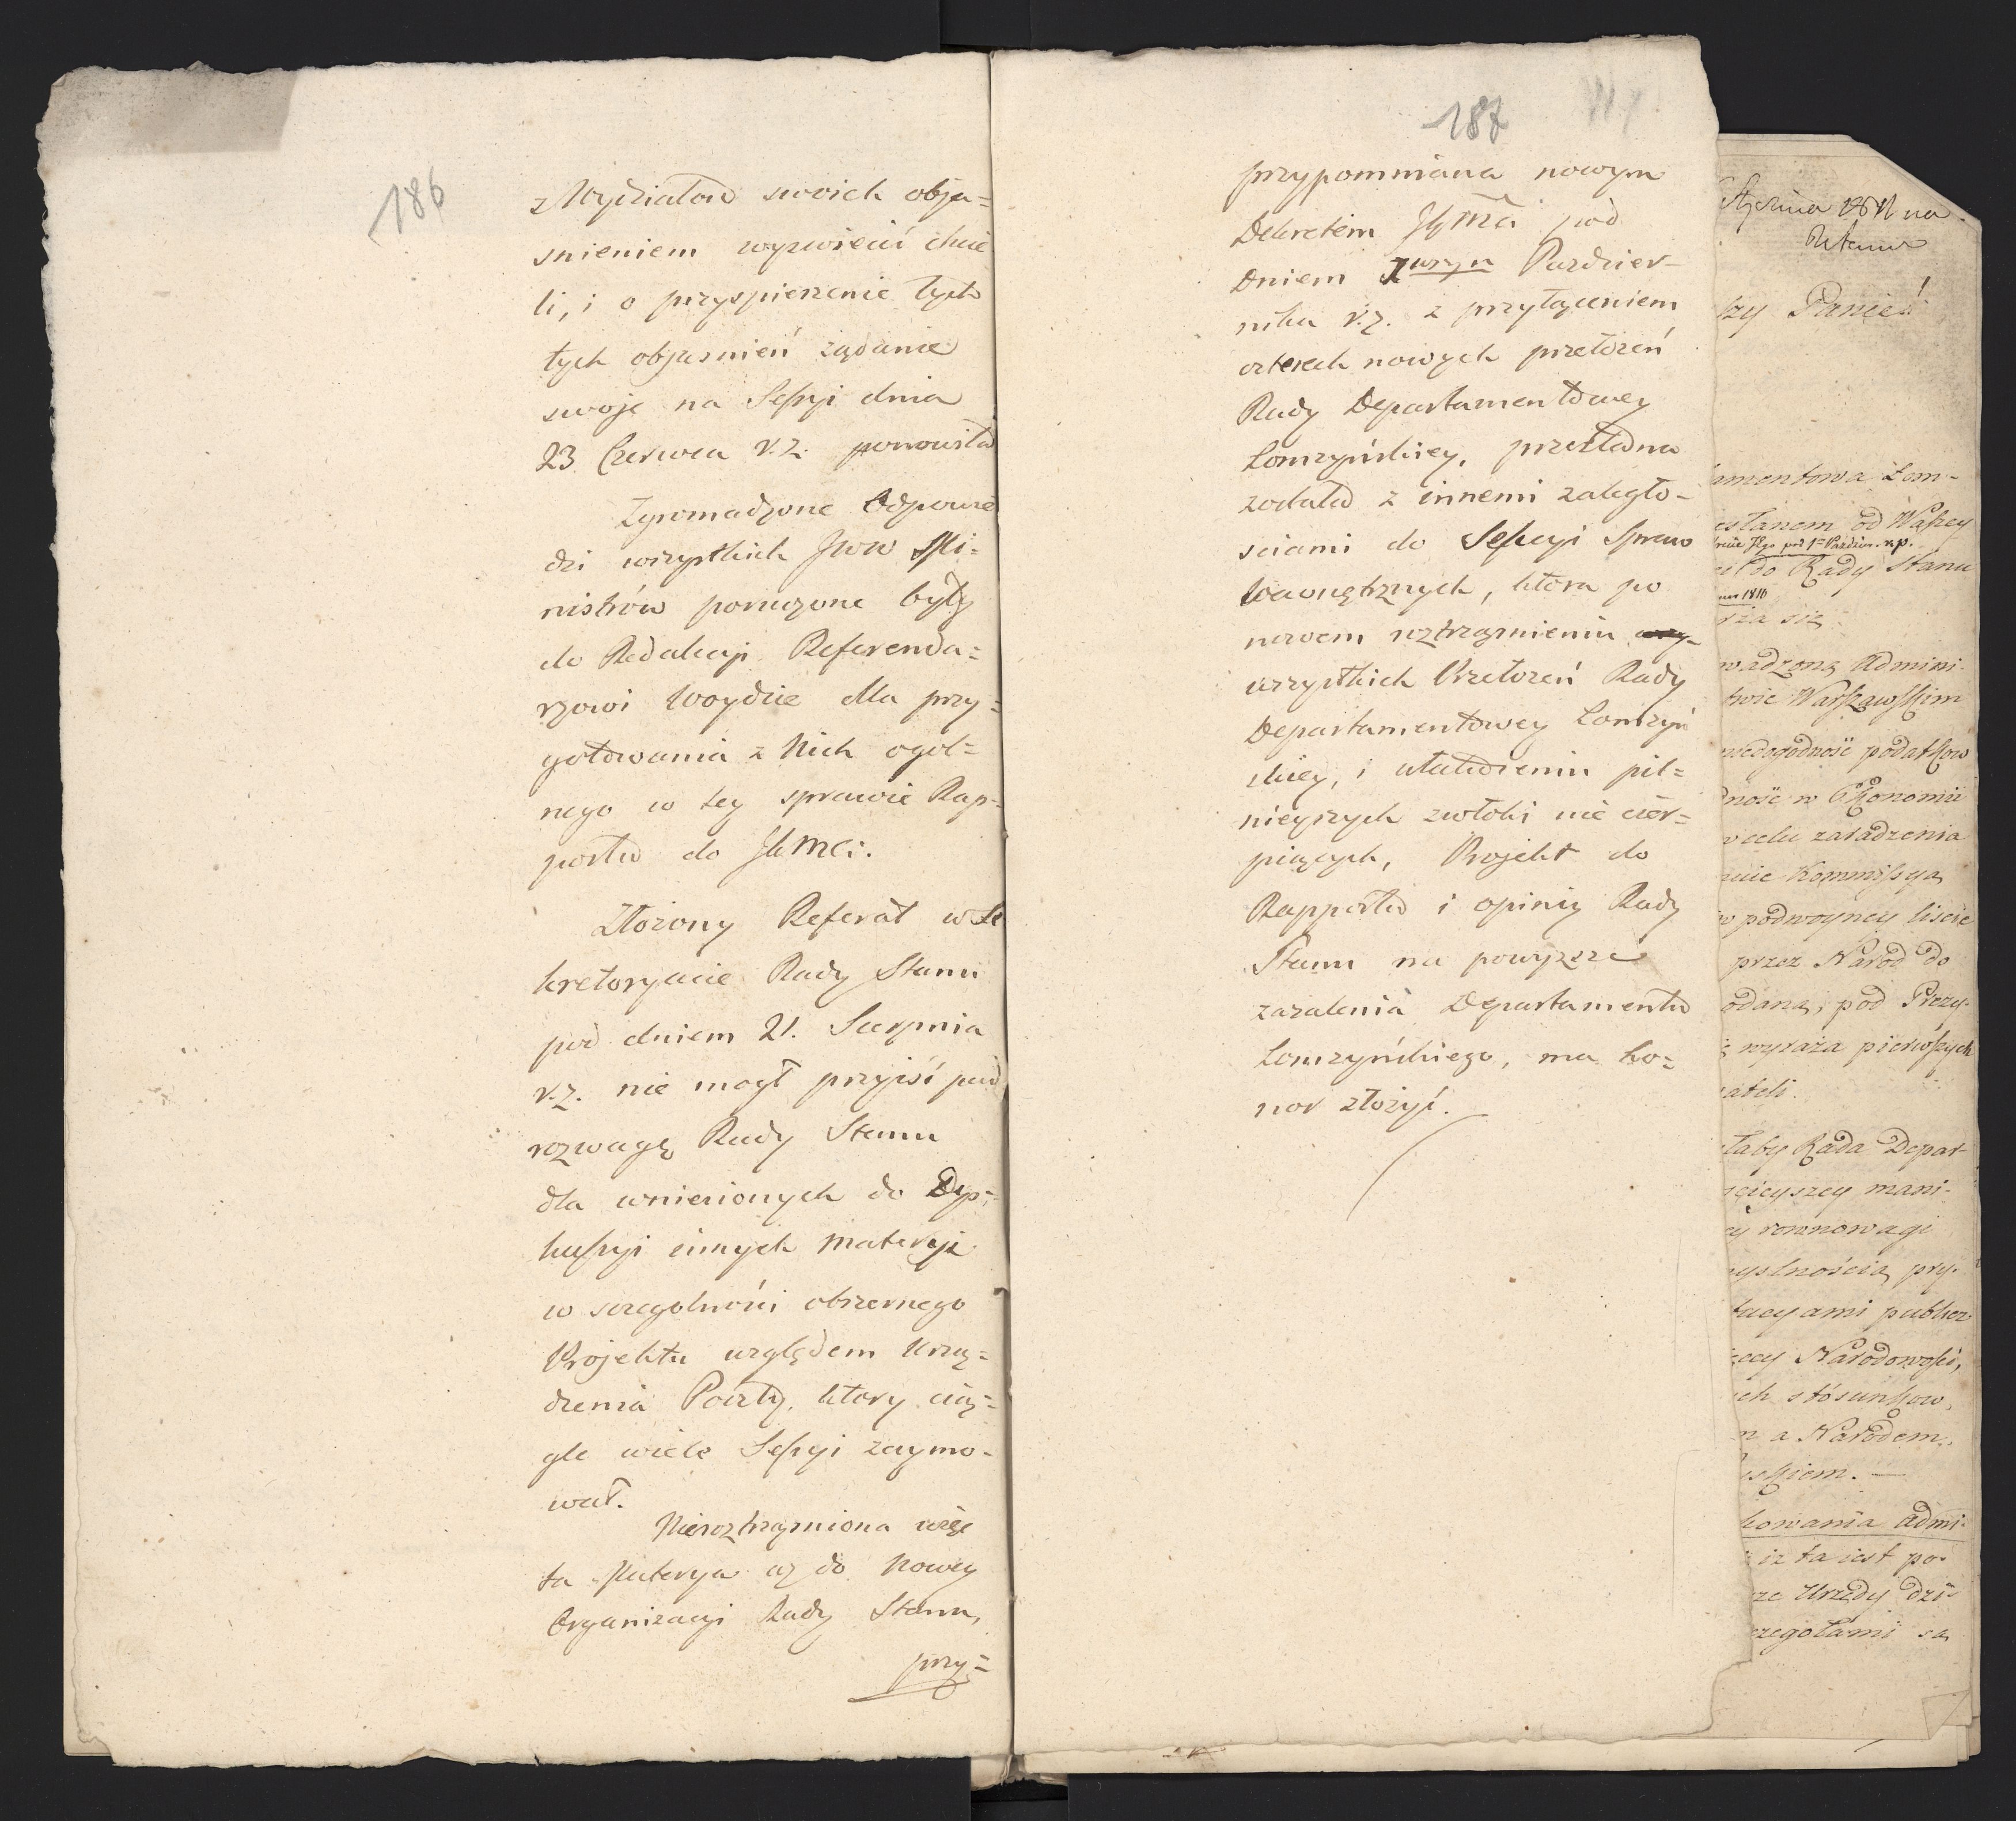 186
z Wydziałow swoich obja=
snieniem wyswiecić chcie
li, i o przyspieszenie tych
tych objasnień żądanie
swoje na Seszyi dnia
23 Czerwca r. z. ponowiła
Zgromadzone Odpowie
dzi wszystkich JWW Mi=
nistrów poruczone były
do Redakcyi Referenda=
rzowi Woydzie dla przy=
gotowania z Nich ogol=
nego w tey sprawie Rap=
portu do JKMci.
Złożony Referat w Se
kretoryacie Rady Stanu
pod dniem 21. Sierpnia
r. z. nie mogł przyjść pod
rozwagę Rady Stanu
dla wniesionych do Dys=
kuszyi innych materyi
w szczegolności obszernego
Projektu względem Urzą=
dzenia Poczty, ktory cią=
gle wiele Seszyi zaymo-
wał.
Nieroztrząsniona więc
ta Materya aż do Nowey
Organizacyi Rady Stanu,
przy=
187
przypomniana nowym
Dekretem JKMci pod
Dniem 1wszym Pazdzier-
nika r. z. z przyłączeniem
czterech nowych przełożeń
Rady Departamentowey
Łomzyńskiey, przesłana
została z innemi zaległo-
sciami do Sekcyi Spraw
Wewnętrznych, ktora po
nowem roztrząsnieniu
wszystkich Przełożeń Rady
Departamentowey Łomżyń
skiey, i ułatwieniu pil=
nieyszych zwłoki nie cier=
piących, Projekt do
Rapportu i opinią Rady
Stanu na powyższe
zażalenia Departamentu
Łomżyńskiego, ma ho=
nor złożyć.
Stycznia 1811 na
zy Panie!
amentowa Łom-
esłanem od Waszey
pod 1 Pazdzier. r.p.
do Rady Stanu
1810
rza się
wadzoną Admini-
twie Warszawskim
niedogodność podatkow
dność w Ekonomii
w celu zaradzenia
Kommissya
w podwoyney liscie
przez Narod do
odaną, pod Prezy-
wyraża pierwszych
ateli.
łaby Rada Depar-
szey mani-
ey rownowagi
yslnością pry-
tucyami publicz
Narodowości,
ch stósunkow,
a Narodem,
skiem. —
kowania Admi-
iz ta iest po-
ze Urzędy dzi-
czegołami są